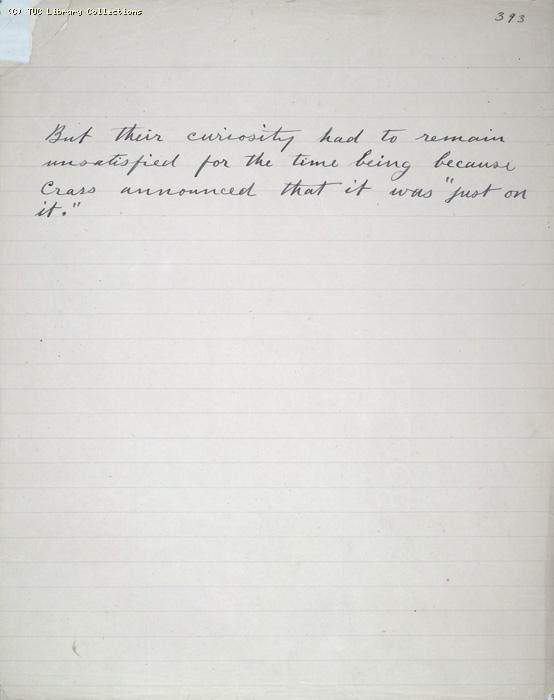 (C) TUC Library Collections
393
But their curiosity had to remain
unsatisfied for the time being because
Crass announced that it was "just on
it."